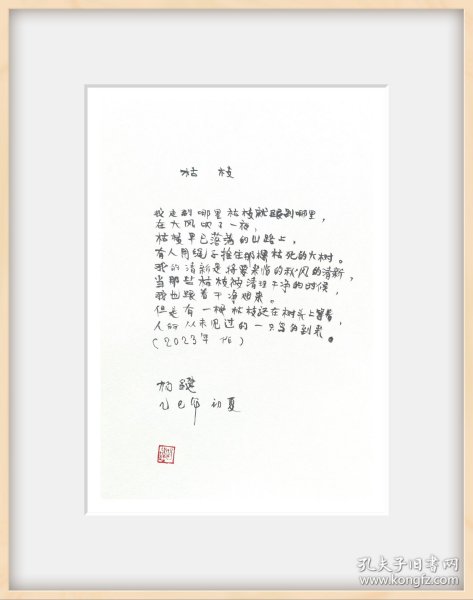 枯枝
我走到哪里枯枝就跟到哪里,
在大风吹了一夜,
枯枝早已落满的山路上,
有人用绳子拴住那棵枯死的大树。
我的清新是将要来临的秋风的清新,
当那些枯枝被清理干净的时候,
我也跟着干净起来。
但是有一根枯枝还在树头上
人们从未见过的一只鸟会到来。
(2023年
杨键
乙巳年 初夏
孔夫子旧书网
www.kongfz.com